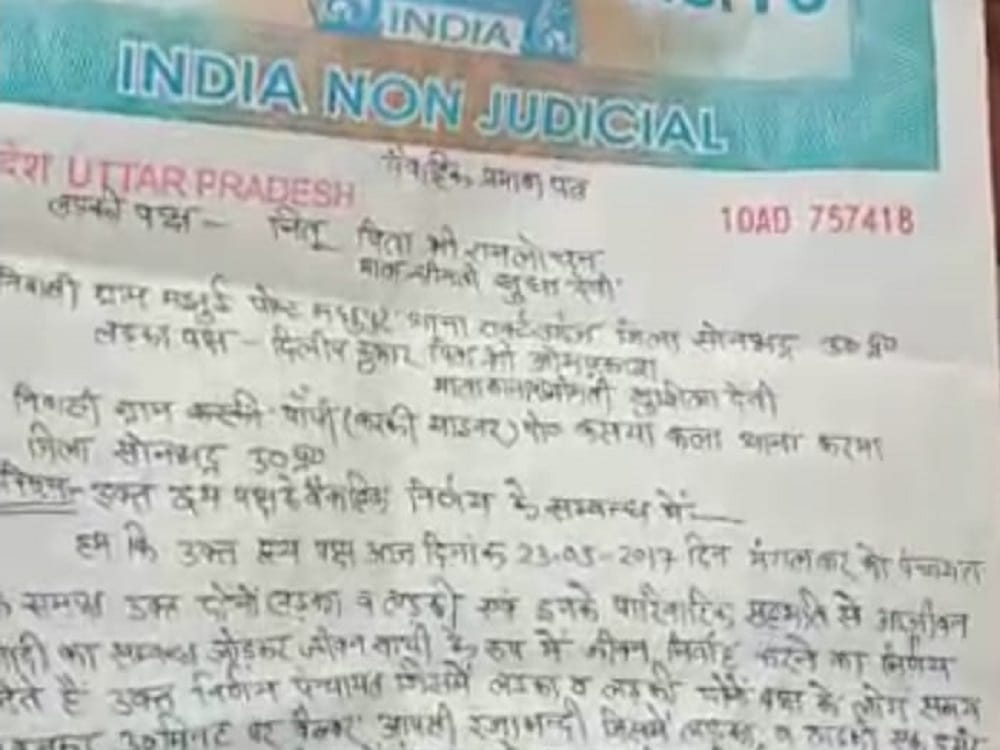 INDIA
INDIA NON JUDICIAL
वैवाहिक प्रमाण पत्र
देश UTTAR PRADESH
10AD 757418
लड़की पक्ष - नितू पिता श्री रामलोचन
माता श्रीमती सुधा देवी
निवासी ग्राम मझुई पोस्ट थाना जिला सोनभद्र उ०प्र०
लड़का पक्ष - दिलीप कुमार पिता श्री ओमप्रकाश
माता का नाम श्रीमती सुशीला देवी
निवासी ग्राम करकी (करकी माइनर) पो० कसया कला थाना करमा
जिला सोनभद्र उ०प्र०
विषय- उक्त उभय पक्ष के वैवाहिक निर्णय के सम्बन्ध में-
हम कि उक्त उभय पक्ष आज दिनांक 23-05-2017 दिन मंगलवार को पंचायत
के समक्ष उक्त दोनों लड़का व लड़की एवं इनके पारिवारिक सहमति से आजीवन
शादी का सम्बन्ध जोड़कर जीवन साथी के रूप में जीवन निर्वाह करने का निर्णय
लेते हैं उक्त निर्णय पंचायत जिसमें लड़का व लड़की दोनों पक्ष के लोग समय
30 मिनट पर बैठकर आपसी रजामन्दी जिसमें लड़का व लड़की एवं